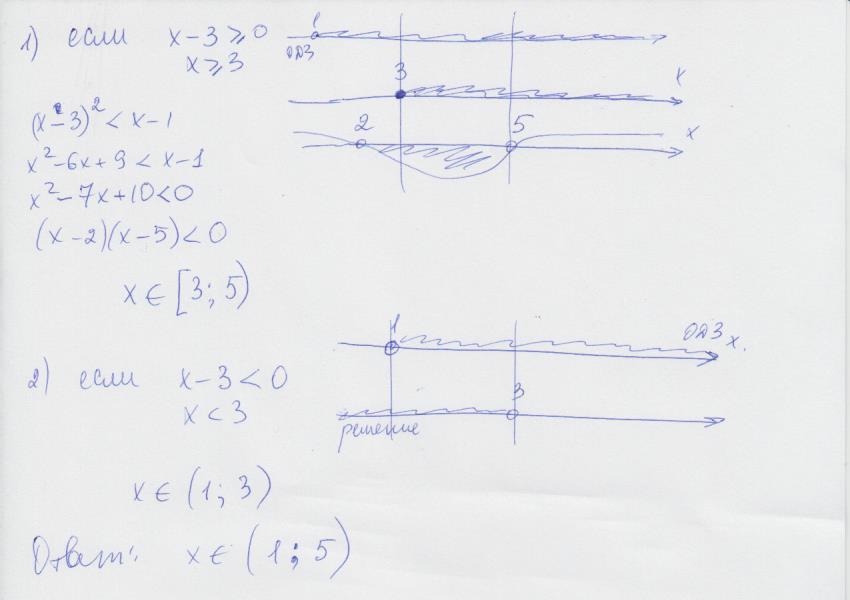 1) если x-3⩾0
x⩾3
1
ОДЗ
3
x
2
5
x
(x-3)² < x-1
x²-6x+9 < x-1
x²-7x+10<0
(x-2)(x-5)<0
x∈[3; 5)
1
ОДЗ x.
2) если x-3<0
x<3
3
решение
x∈(1; 3)
Ответ: x∈(1; 5)